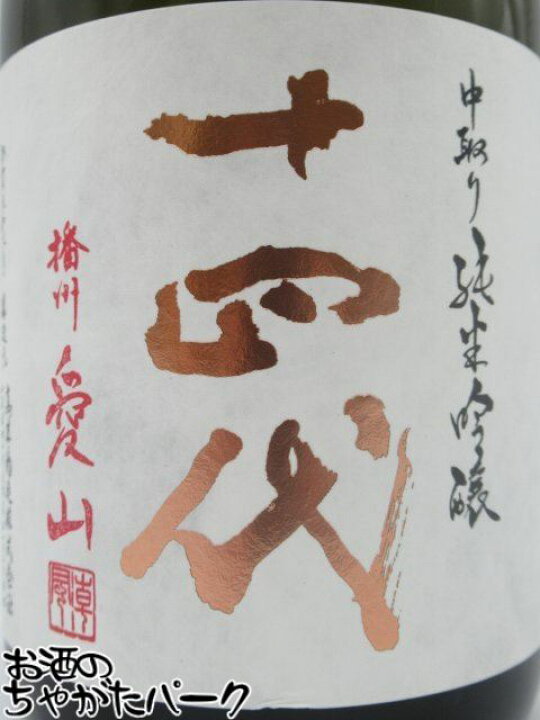 中取り純米吟醸
十四代
播州愛山
お酒の
ちゃがたパーク